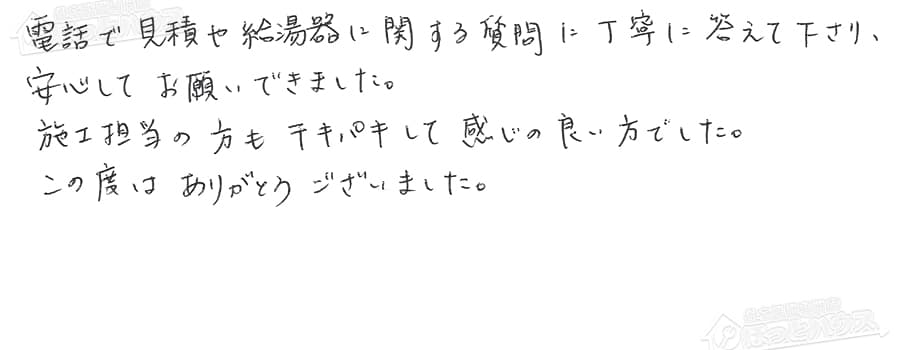 電話で見積や給湯器に関する質問に丁寧に答えて下さり、
安心してお願いできました。
施工担当の方もテキパキして感じの良い方でした。
この度はありがとうございました。
ほっとハウス